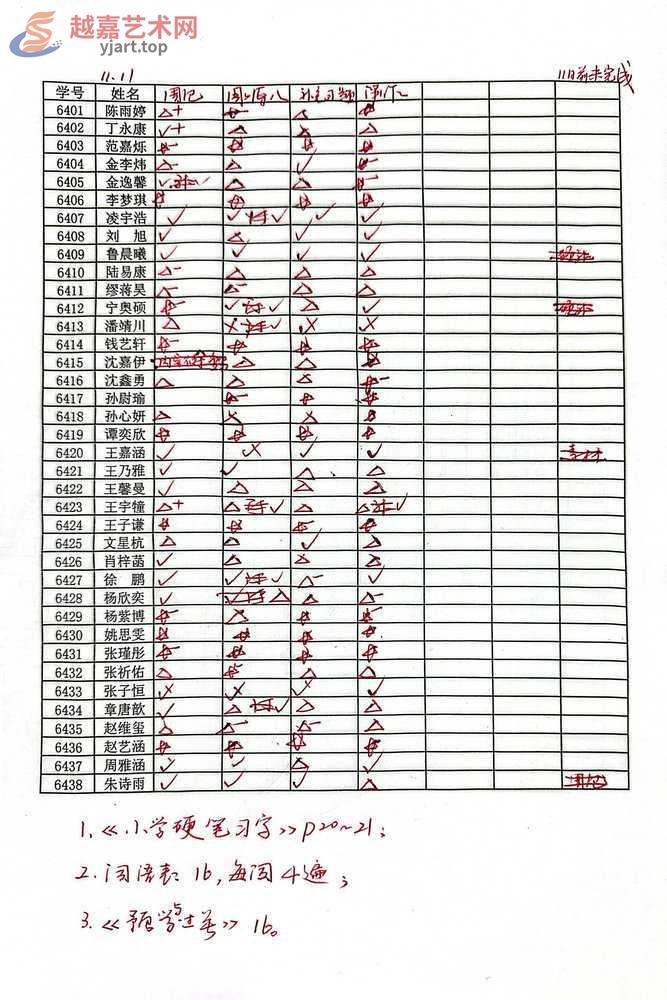 越嘉艺术网
yjart.top
11.11
学号 姓名 周记
6401 陈雨婷
6402 丁永康
6403 范嘉烁
6404 金李炜
6405 金逸馨
6406 李梦琪
6407 凌宇浩
6408 刘 旭
6409 鲁晨曦
6410 陆易康
6411 缪蒋昊
6412 宁奥硕
6413 潘靖川
6414 钱艺轩
6415 沈嘉伊
6416 沈鑫勇
6417 孙尉瑜
6418 孙心妍
6419 谭奕欣
6420 王嘉涵
6421 王乃雅
6422 王馨曼
6423 王宇犝
6424 王子谦
6425 文星杭
6426 肖梓菡
6427 徐 鹏
6428 杨欣奕
6429 杨紫博
6430 姚思雯
6431 张瑾彤
6432 张祈佑
6433 张子恒
6434 章唐歆
6435 赵维玺
6436 赵艺涵
6437 周雅涵
6438 朱诗雨
1.《小学硬笔习字》P20~21；
2.词语表：16，每词4遍；
3.《预学与过关》16。